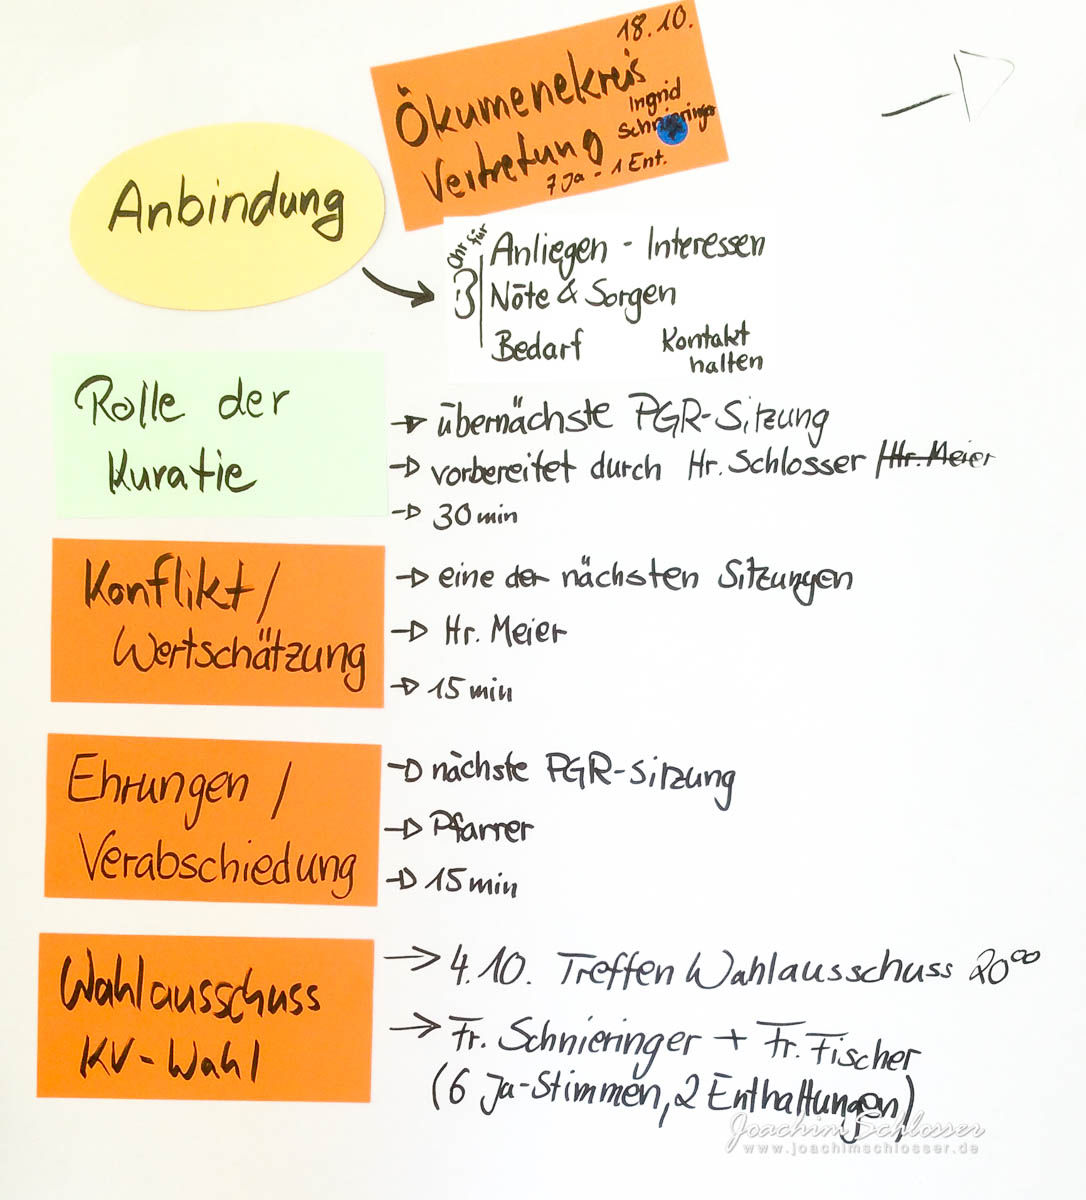 18.10.
Ökumenekreis
Vertretung
Ingrid
Schnieringer
7 Ja - 1 Ent.
Anbindung
Ohr für
Anliegen - Interessen
Nöte & Sorgen
Bedarf
Kontakt
halten
Rolle der
Kuratie
übernächste PGR-Sitzung
vorbereitet durch Hr. Schlosser / Hr. Meier
30 min
Konflikt /
Wertschätzung
eine der nächsten Sitzungen
Hr. Meier
15 min
Ehrungen /
Verabschiedung
nächste PGR-Sitzung
Pfarrer
15 min
Wahlausschuss
KV-Wahl
4.10. Treffen Wahlausschuss 20⁰⁰
Fr. Schnieringer + Fr. Fischer
(6 Ja-Stimmen, 2 Enthaltungen)
Joachim Schlosser
www.joachimschlosser.de